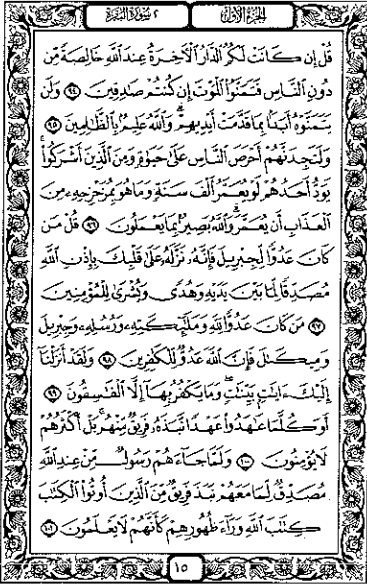 الجزء الأول
٢ سورة البقرة
قُلْ إِن كَانَتْ لَكُمُ الدَّارُ الْآخِرَةُ عِندَ اللَّهِ خَالِصَةً مِّن
دُونِ النَّاسِ فَتَمَنَّوُا الْمَوْتَ إِن كُنتُمْ صَادِقِينَ ٩٤ وَلَن
يَتَمَنَّوْهُ أَبَدًا بِمَا قَدَّمَتْ أَيْدِيهِمْ وَاللَّهُ عَلِيمٌ بِالظَّالِمِينَ ٩٥
وَلَتَجِدَنَّهُمْ أَحْرَصَ النَّاسِ عَلَىٰ حَيَوٰةٍ وَمِنَ الَّذِينَ أَشْرَكُوا
يَوَدُّ أَحَدُهُمْ لَوْ يُعَمَّرُ أَلْفَ سَنَةٍ وَمَا هُوَ بِمُزَحْزِحِهِ مِنَ
الْعَذَابِ أَن يُعَمَّرَ وَاللَّهُ بَصِيرٌ بِمَا يَعْمَلُونَ ٩٦ قُلْ مَن
كَانَ عَدُوًّا لِّجِبْرِيلَ فَإِنَّهُ نَزَّلَهُ عَلَىٰ قَلْبِكَ بِإِذْنِ اللَّهِ
مُصَدِّقًا لِّمَا بَيْنَ يَدَيْهِ وَهُدًى وَبُشْرَىٰ لِلْمُؤْمِنِينَ
٩٧ مَن كَانَ عَدُوًّا لِّلَّهِ وَمَلَٰٓئِكَتِهِ وَرُسُلِهِ وَجِبْرِيلَ
وَمِيكَىٰلَ فَإِنَّ اللَّهَ عَدُوٌّ لِّلْكَٰفِرِينَ ٩٨ وَلَقَدْ أَنزَلْنَا
إِلَيْكَ ءَايَٰتٍ بَيِّنَٰتٍ وَمَا يَكْفُرُ بِهَا إِلَّا الْفَٰسِقُونَ ٩٩
أَوَكُلَّمَا عَٰهَدُوا عَهْدًا نَّبَذَهُ فَرِيقٌ مِّنْهُم بَلْ أَكْثَرُهُمْ
لَا يُؤْمِنُونَ ١٠٠ وَلَمَّا جَاءَهُمْ رَسُولٌ مِّنْ عِندِ اللَّهِ
مُصَدِّقٌ لِّمَا مَعَهُمْ نَبَذَ فَرِيقٌ مِّنَ الَّذِينَ أُوتُوا الْكِتَٰبَ
كِتَٰبَ اللَّهِ وَرَاءَ ظُهُورِهِمْ كَأَنَّهُمْ لَا يَعْلَمُونَ ١٠١
١٥